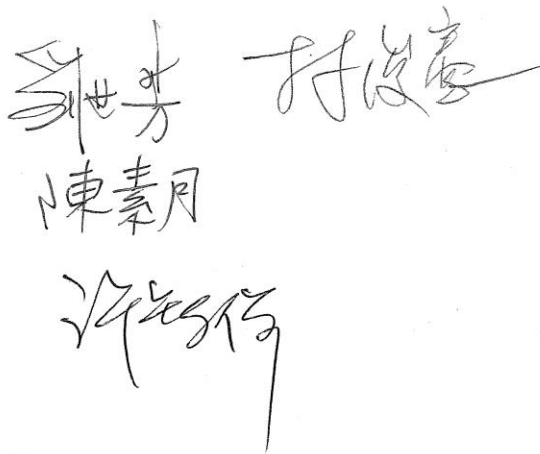 劉世芳 林俊憲
陳素月
許智傑